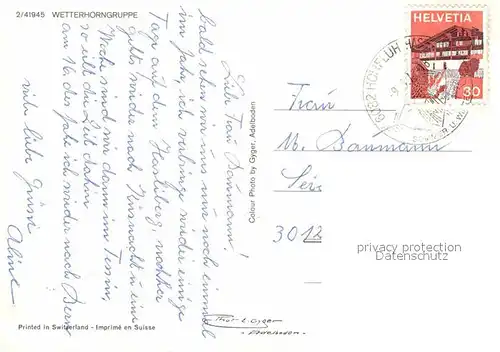 2/41945 WETTERHORNGRUPPE
HELVETIA
30
6082 HOHFLUH
Liebe Frau Baumann!
bald sehen wir uns nur noch einmal
im Jahr, ich verbringe wieder einige
Tage auf dem Hasliberg, nachher
geht's wieder nach Küsnacht u eine
Woche sind wir dann im Tessin,
so eilt die Zeit dahin
am 16. des fahr ich wieder nach Bern
viele liebe Grüsse
Aline
Colour Photo by Gyger, Adelboden
Frau
M. Baumann
3012
privacy protection
Datenschutz
Printed in Switzerland - Imprimé en Suisse
Thor E. Gyger
Adelboden